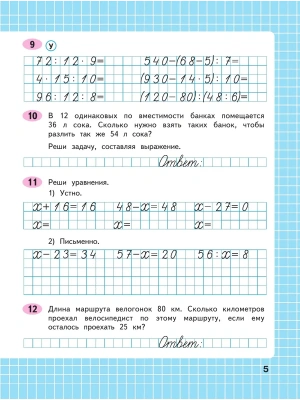 9 У
72:12·9= 540-(68-5):7=
4·15:10= (930-14·5):10=
96:12:8= (120-80):(48:6)=
10 В 12 одинаковых по вместимости банках помещается
36 л сока. Сколько нужно взять таких банок, чтобы
разлить так же 54 л сока?
Реши задачу, составляя выражение.
Ответ:
11 Реши уравнения.
1) Устно.
x+16=16 48-x=48 x-27=0
x= x= x=
2) Письменно.
x-23=34 57-x=20 56:x=8
12 Длина маршрута велогонок 80 км. Сколько километров
проехал велосипедист по этому маршруту, если ему
осталось проехать 25 км?
Ответ:
5